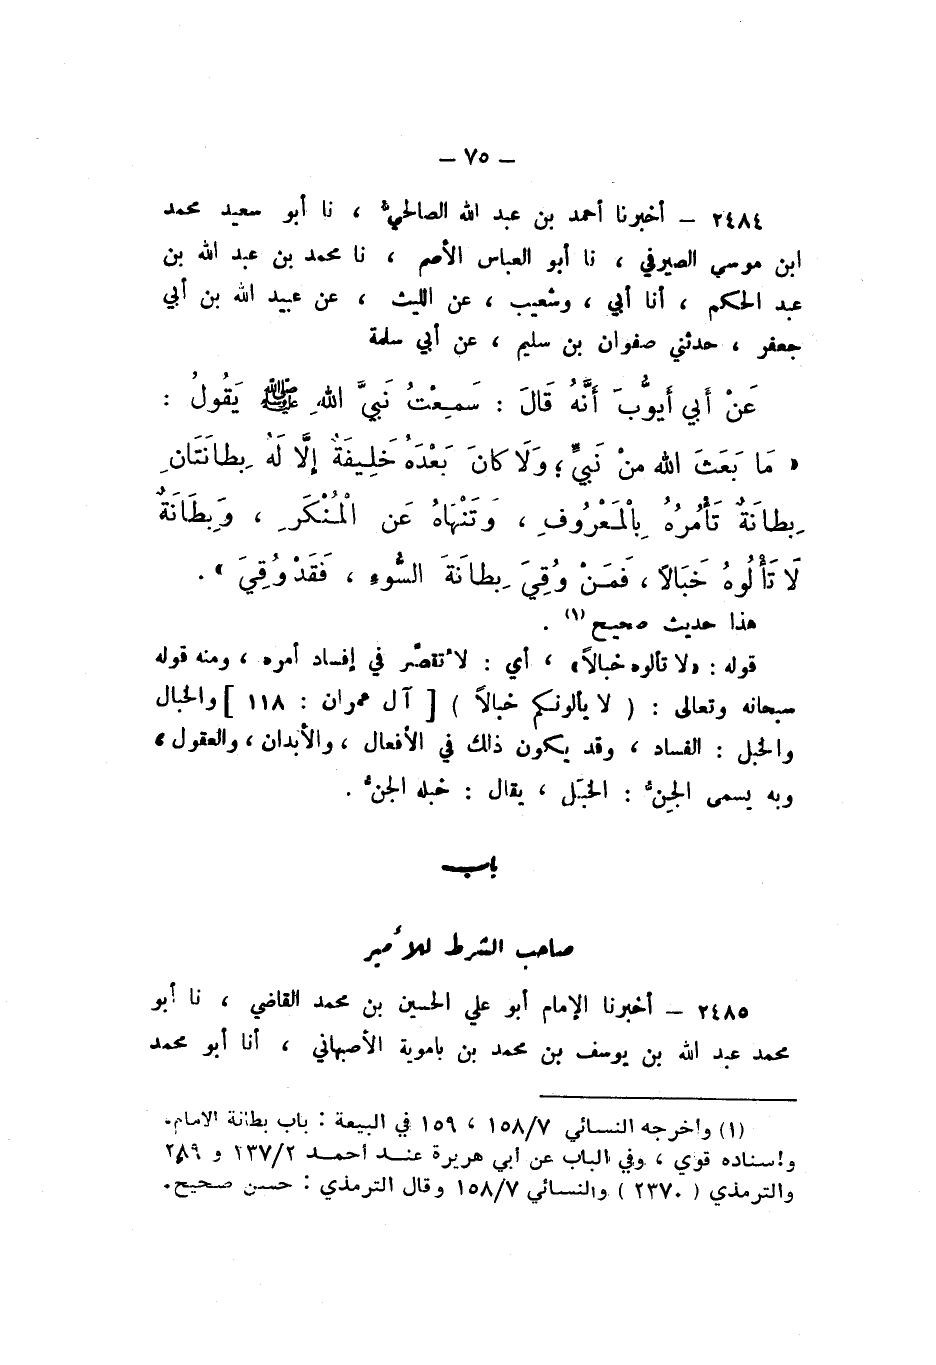 – ٧٥ –
٢٤٨٤ – أخبرنا أحمد بن عبد الله الصالحيُّ ، نا أبو سعيد محمد
ابن موسى الصيرفي ، نا أبو العباس الأصم ، نا محمد بن عبد الله بن
عبد الحكم ، أنا أبي ، وشعيب ، عن الليث ، عن عبيد الله بن أبي
جعفر ، حدثني صفوان بن سليم ، عن أبي سلمة
عَنْ أَبي أَيوُّبَ أَنَّهُ قَالَ : سَمِعْتُ نَبيَّ اللهِ ﷺ يَقُولُ :
« مَا بَعَثَ الله مِنْ نَبيٍّ ؛ وَلَا كانَ بَعْدَهُ خَلِيفَةٌ إلَّا لَهُ بِطانَتَانِ
بِطانَةٌ تَأْمُرُهُ بِالْمَعْرُوفِ ، وَتَنْهَاهُ عَن الْمُنْكَرِ ، وَبِطَانَةٌ
لَا تَأْلُوهُ خَبَالاً ، فَمَنْ وُقِيَ بِطانَةَ السُّوءِ ، فَقَدْ وُقِيَ » .
هذا حديث صحيح (١) .
قوله : «لا تألوه خبالاً» ، أي : لا تقصِّر في إفساد أموره ، ومنه قوله
سبحانه وتعالى : ( لا يألونكم خبالاً ) [ آل عمران : ١١٨ ] والخبال
والخبل : الفساد ، وقد يكون ذلك في الأفعال ، والأبدان ، والعقول ،
وبه يسمى الجِنُّ : الخبَل ، يقال : خبله الجنُّ .
باب
صاحب الشرط للأمير
٢٤٨٥ – أخبرنا الإمام أبو علي الحسين بن محمد القاضي ، نا أبو
محمد عبد الله بن يوسف بن محمد بن باموية الأصبهاني ، أنا أبو محمد
(١) وأخرجه النسائي ١٥٨/٧ ، ١٥٩ في البيعة : باب بطانة الامام.
وإسناده قوي ، وفي الباب عن أبي هريرة عند أحمد ٢٣٧/٢ و ٢٨٩
والترمذي ( ٢٣٧٠ ) والنسائي ١٥٨/٧ وقال الترمذي : حسن صحيح.